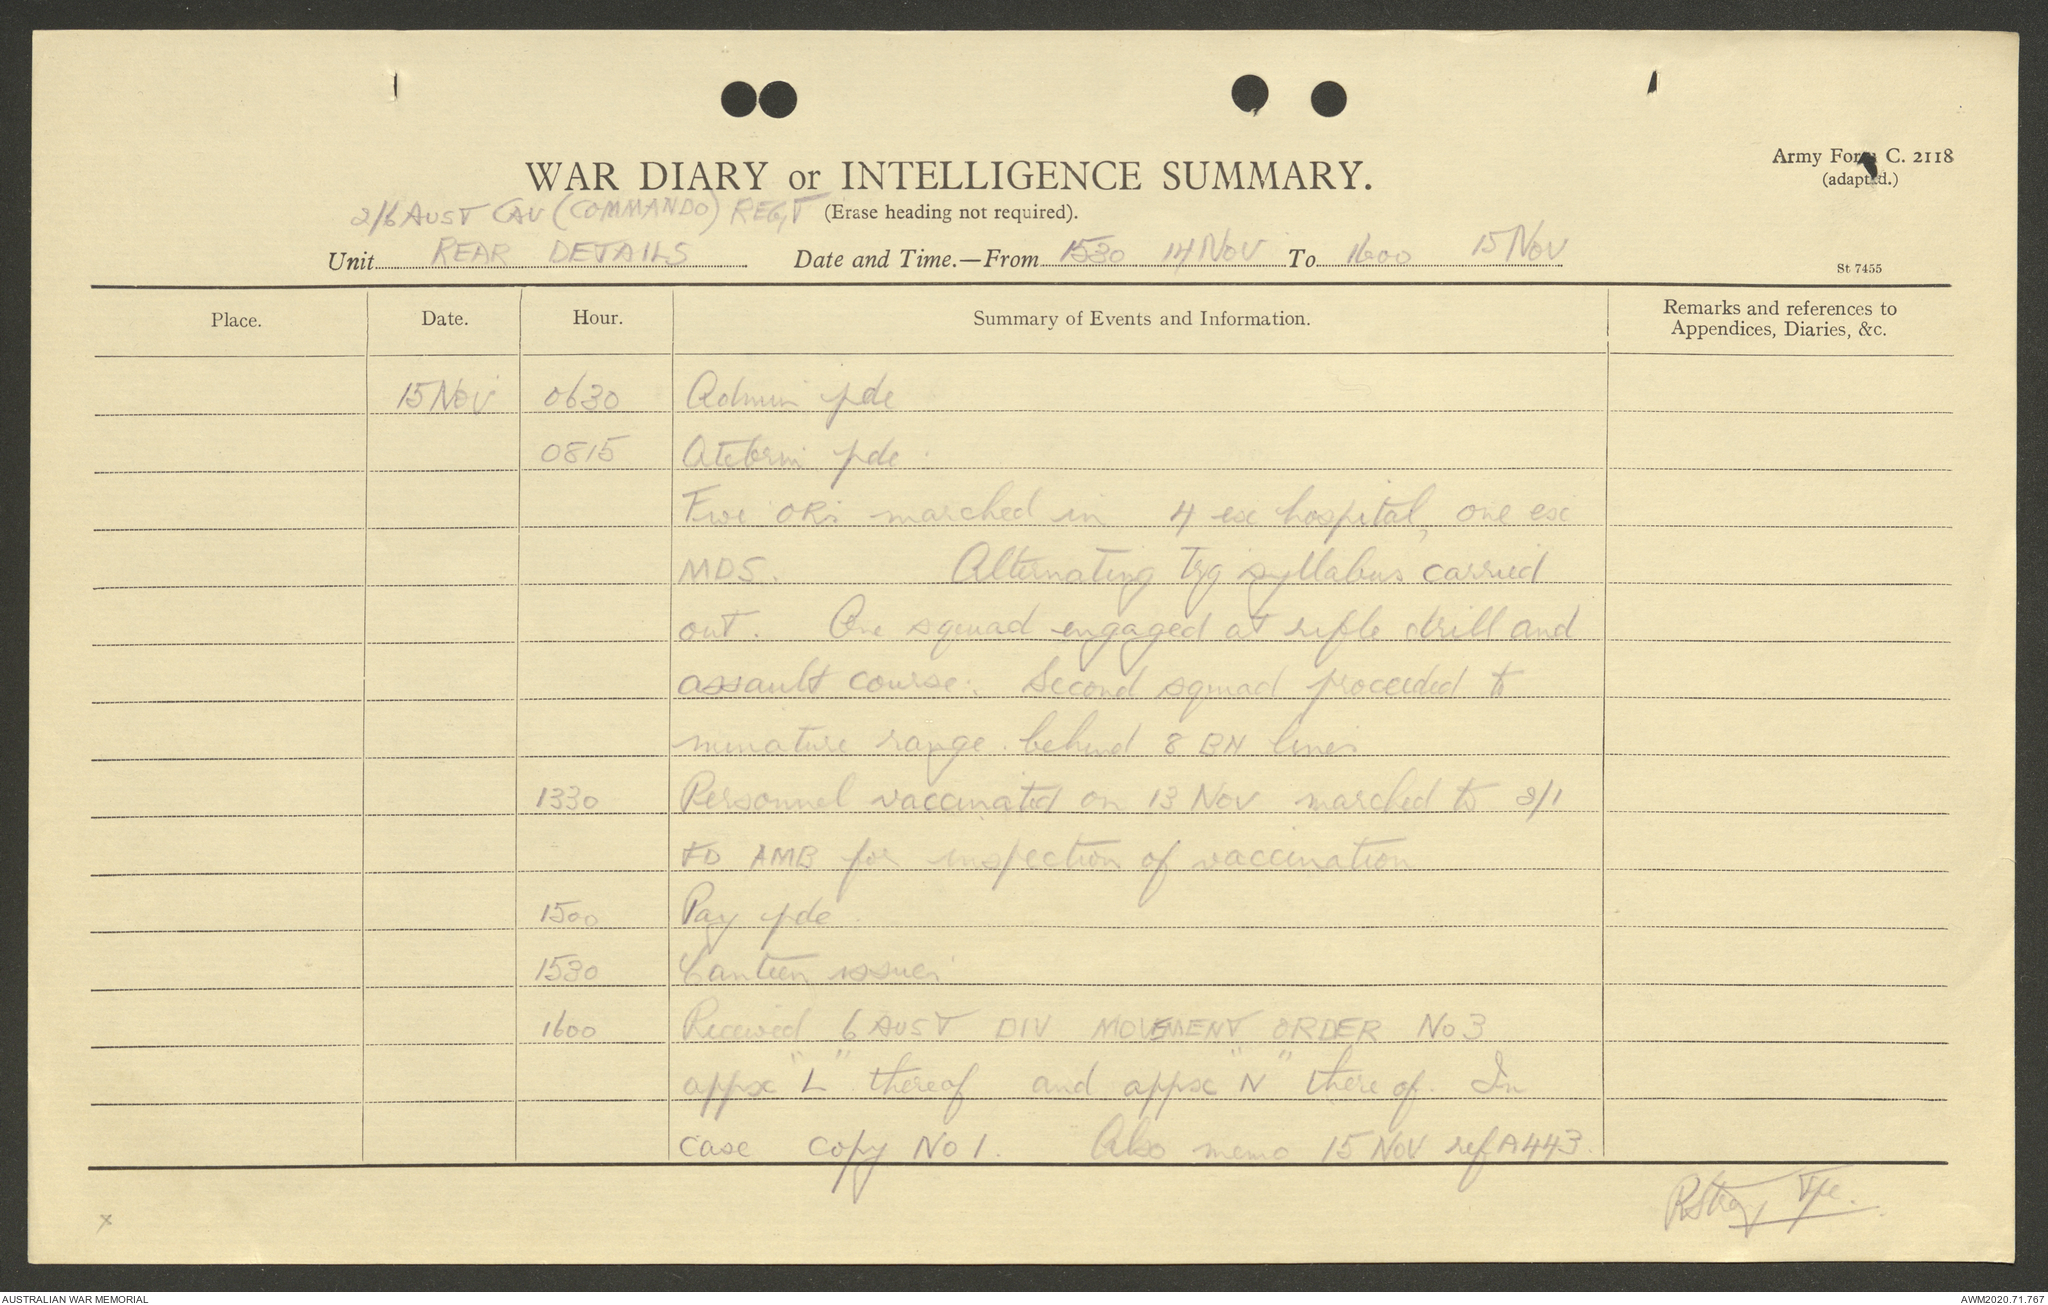 Army Form C. 2118
(adapted.)
WAR DIARY or INTELLIGENCE SUMMARY.
2/6 AUST CAV (COMMANDO) REGT (Erase heading not required).
Unit REAR DETAILS Date and Time.—From 1530 14 NOV To 1600 15 NOV
St 7455
Place. Date. Hour. Summary of Events and Information. Remarks and references to
Appendices, Diaries, &c.
15 NOV 0630 Admin pde
0815 Atebrin pde.
Five ORs marched in 4 ex hospital, one ex
MDS. Alternating Trg syllabus carried
out. One squad engaged at rifle drill and
assault course. Second squad proceeded to
miniature range behind 8 BN lines
1330 Personnel vaccinated on 13 NOV marched to 2/1
FD AMB for inspection of vaccination
1500 Pay pde.
1530 Canteen issues
1600 Received 6 AUST DIV MOVEMENT ORDER No 3
appx "L" thereof and appx "N" there of. In
case copy No 1. Also memo 15 NOV ref A443.
Tpr.
x
AUSTRALIAN WAR MEMORIAL
AWM2020.71.767